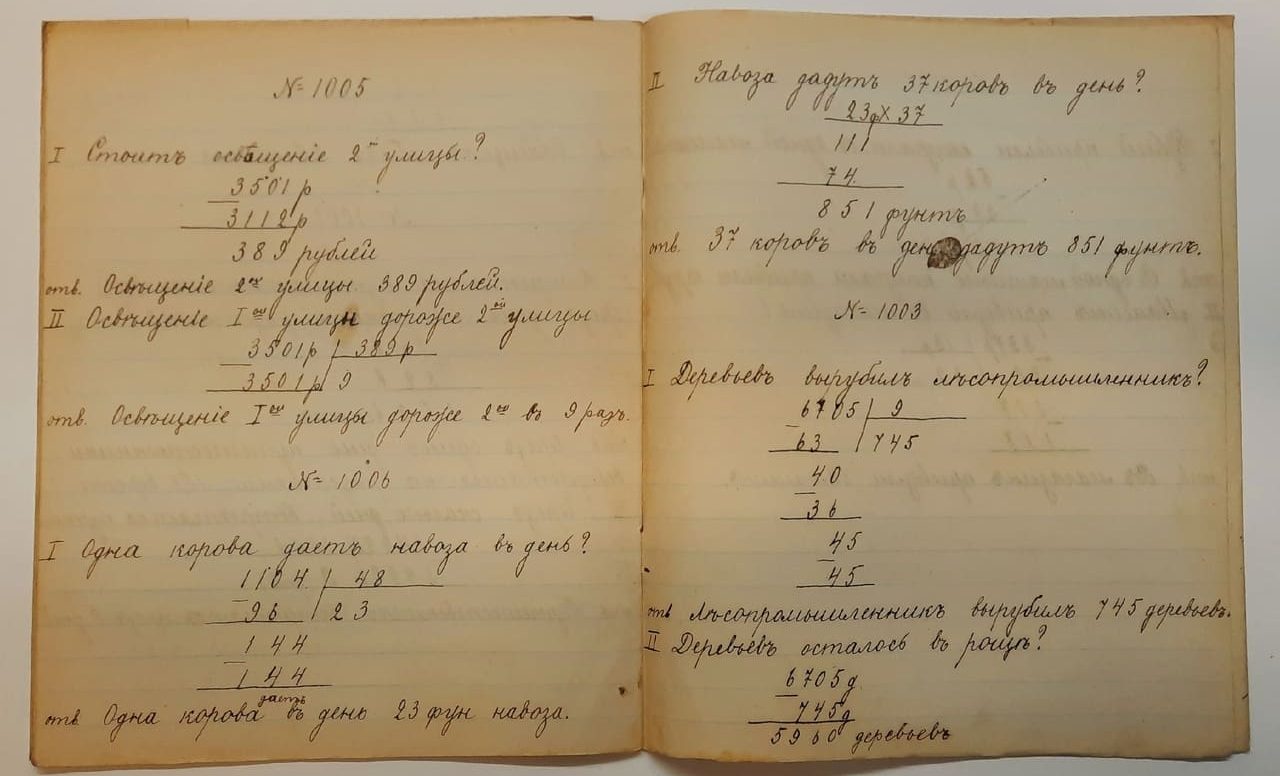 № 1005
I Стоитъ освѣщеніе 2й улицы?
3501 р
3112 р
389 рублей
отв. Освѣщеніе 2ой улицы 389 рублей.
II Освѣщеніе Iой улицы дороже 2ой улицы
3501 р 389 р
3501 р 9
отв. Освѣщеніе Iой улицы дороже 2ой въ 9 разъ.
№ 1006
I Одна корова даетъ навоза въ день?
1104 48
96 23
144
144
отв Одна корова даетъ въ день 23 фун навоза.
II Навоза дадутъ 37 коровъ въ день?
23ф х 37
111
74
851 фунтъ
отв. 37 коровъ въ день дадутъ 851 фунтъ.
№ 1003
I Деревьевъ вырубилъ лѣсопромышленникъ?
6705 9
63 745
40
36
45
45
отв Лѣсопромышленникъ вырубилъ 745 деревьевъ.
II Деревьевъ осталось въ рощѣ?
6705 д
745 д
5960 деревьевъ